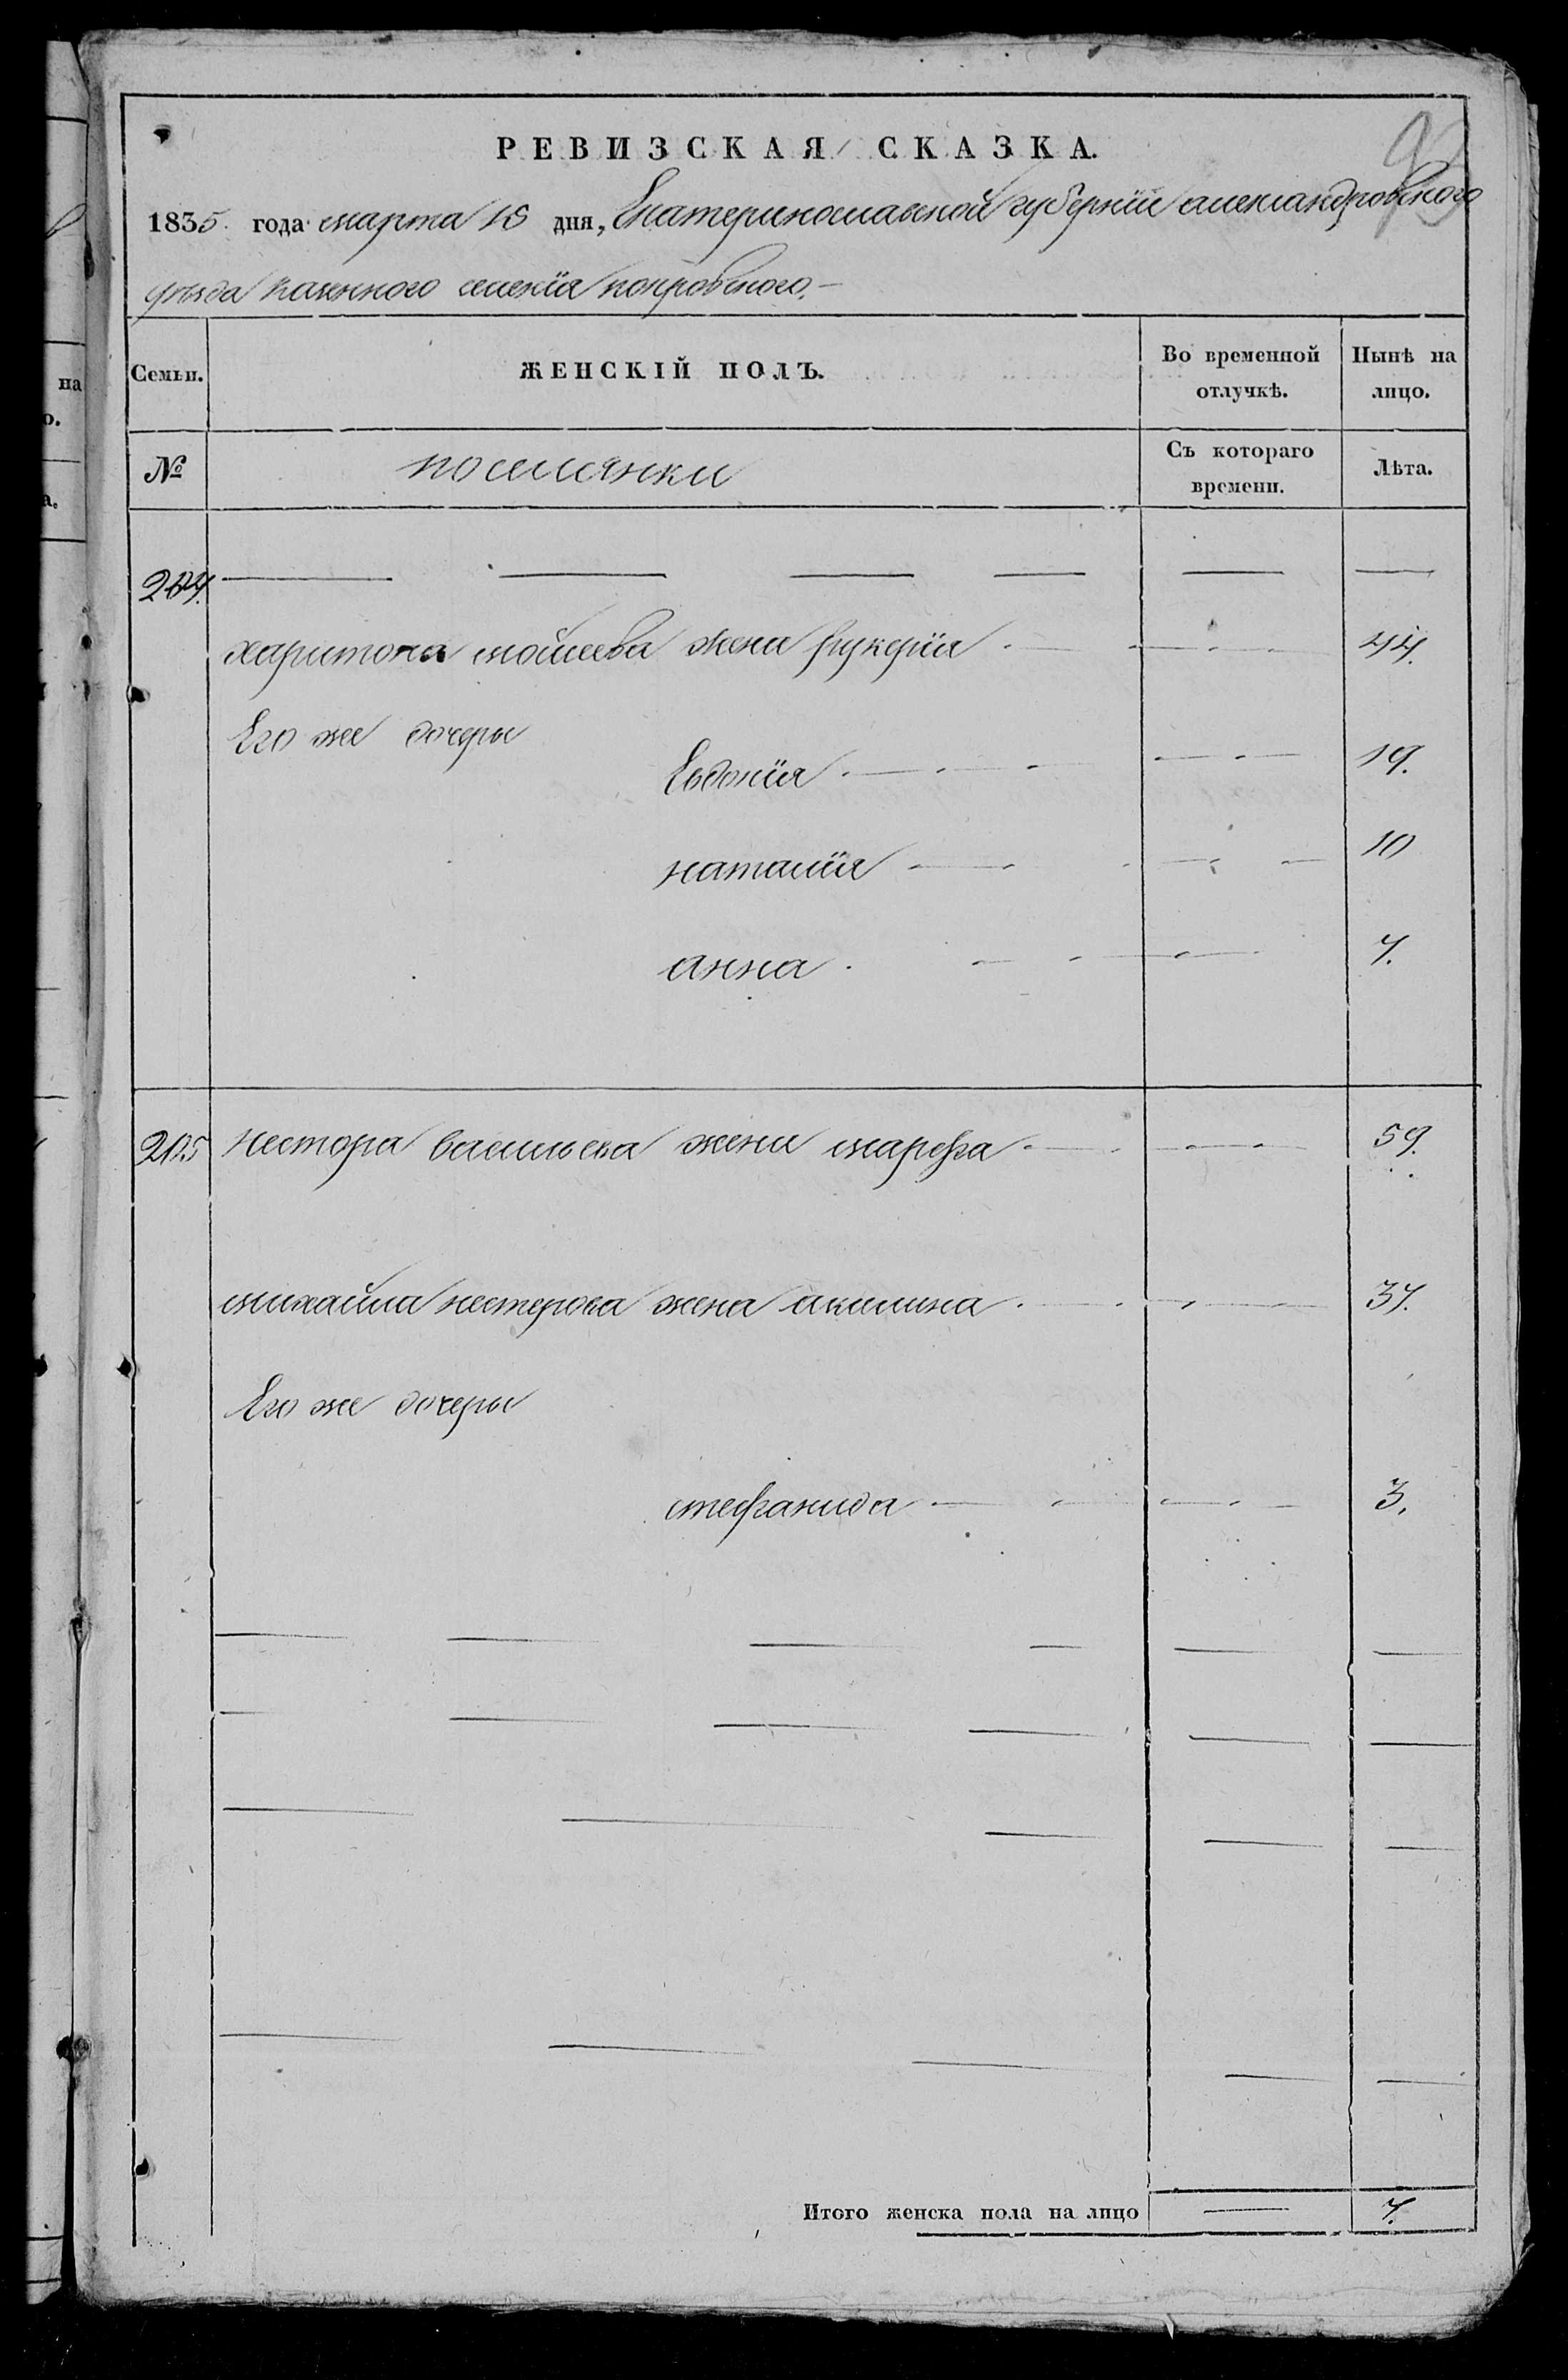 РЕВИЗСКАЯ СКАЗКА.
1835. года марта 18 дня, Екатеринославской губернїи александровского
уезда казенного селенїя покровского.—
Семьи. ЖЕНСКІЙ ПОЛЪ. Во временной отлучкѣ. Нынѣ на лицо.
№ поселянки Съ котораго времени. Лѣта.
204.
харитона мойсеева жена глукерїя 44.
Его же дочеры
Евдокїя 19.
наталїя 10
анна 7.
205 нестора васильева жена марефа 59.
михайла нестерова жена акилина 37.
Его же дочеры
стефанида 3.
Итого женска пола на лицо 7.
на
о.
а.